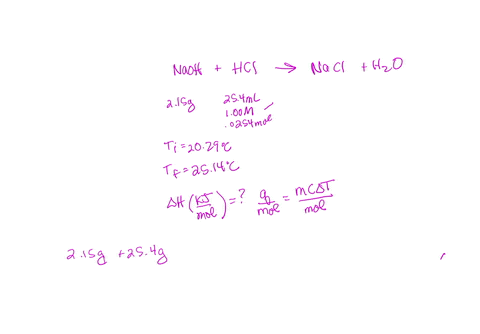 NaOH + HCl → NaCl + H₂O
2.15g 25.4mL
1.00M
.0254mol
Ti = 20.29°C
Tf = 25.14°C
ΔH (kJ/mol) = ? q/mol = mCΔT/mol
2.15g + 25.4g